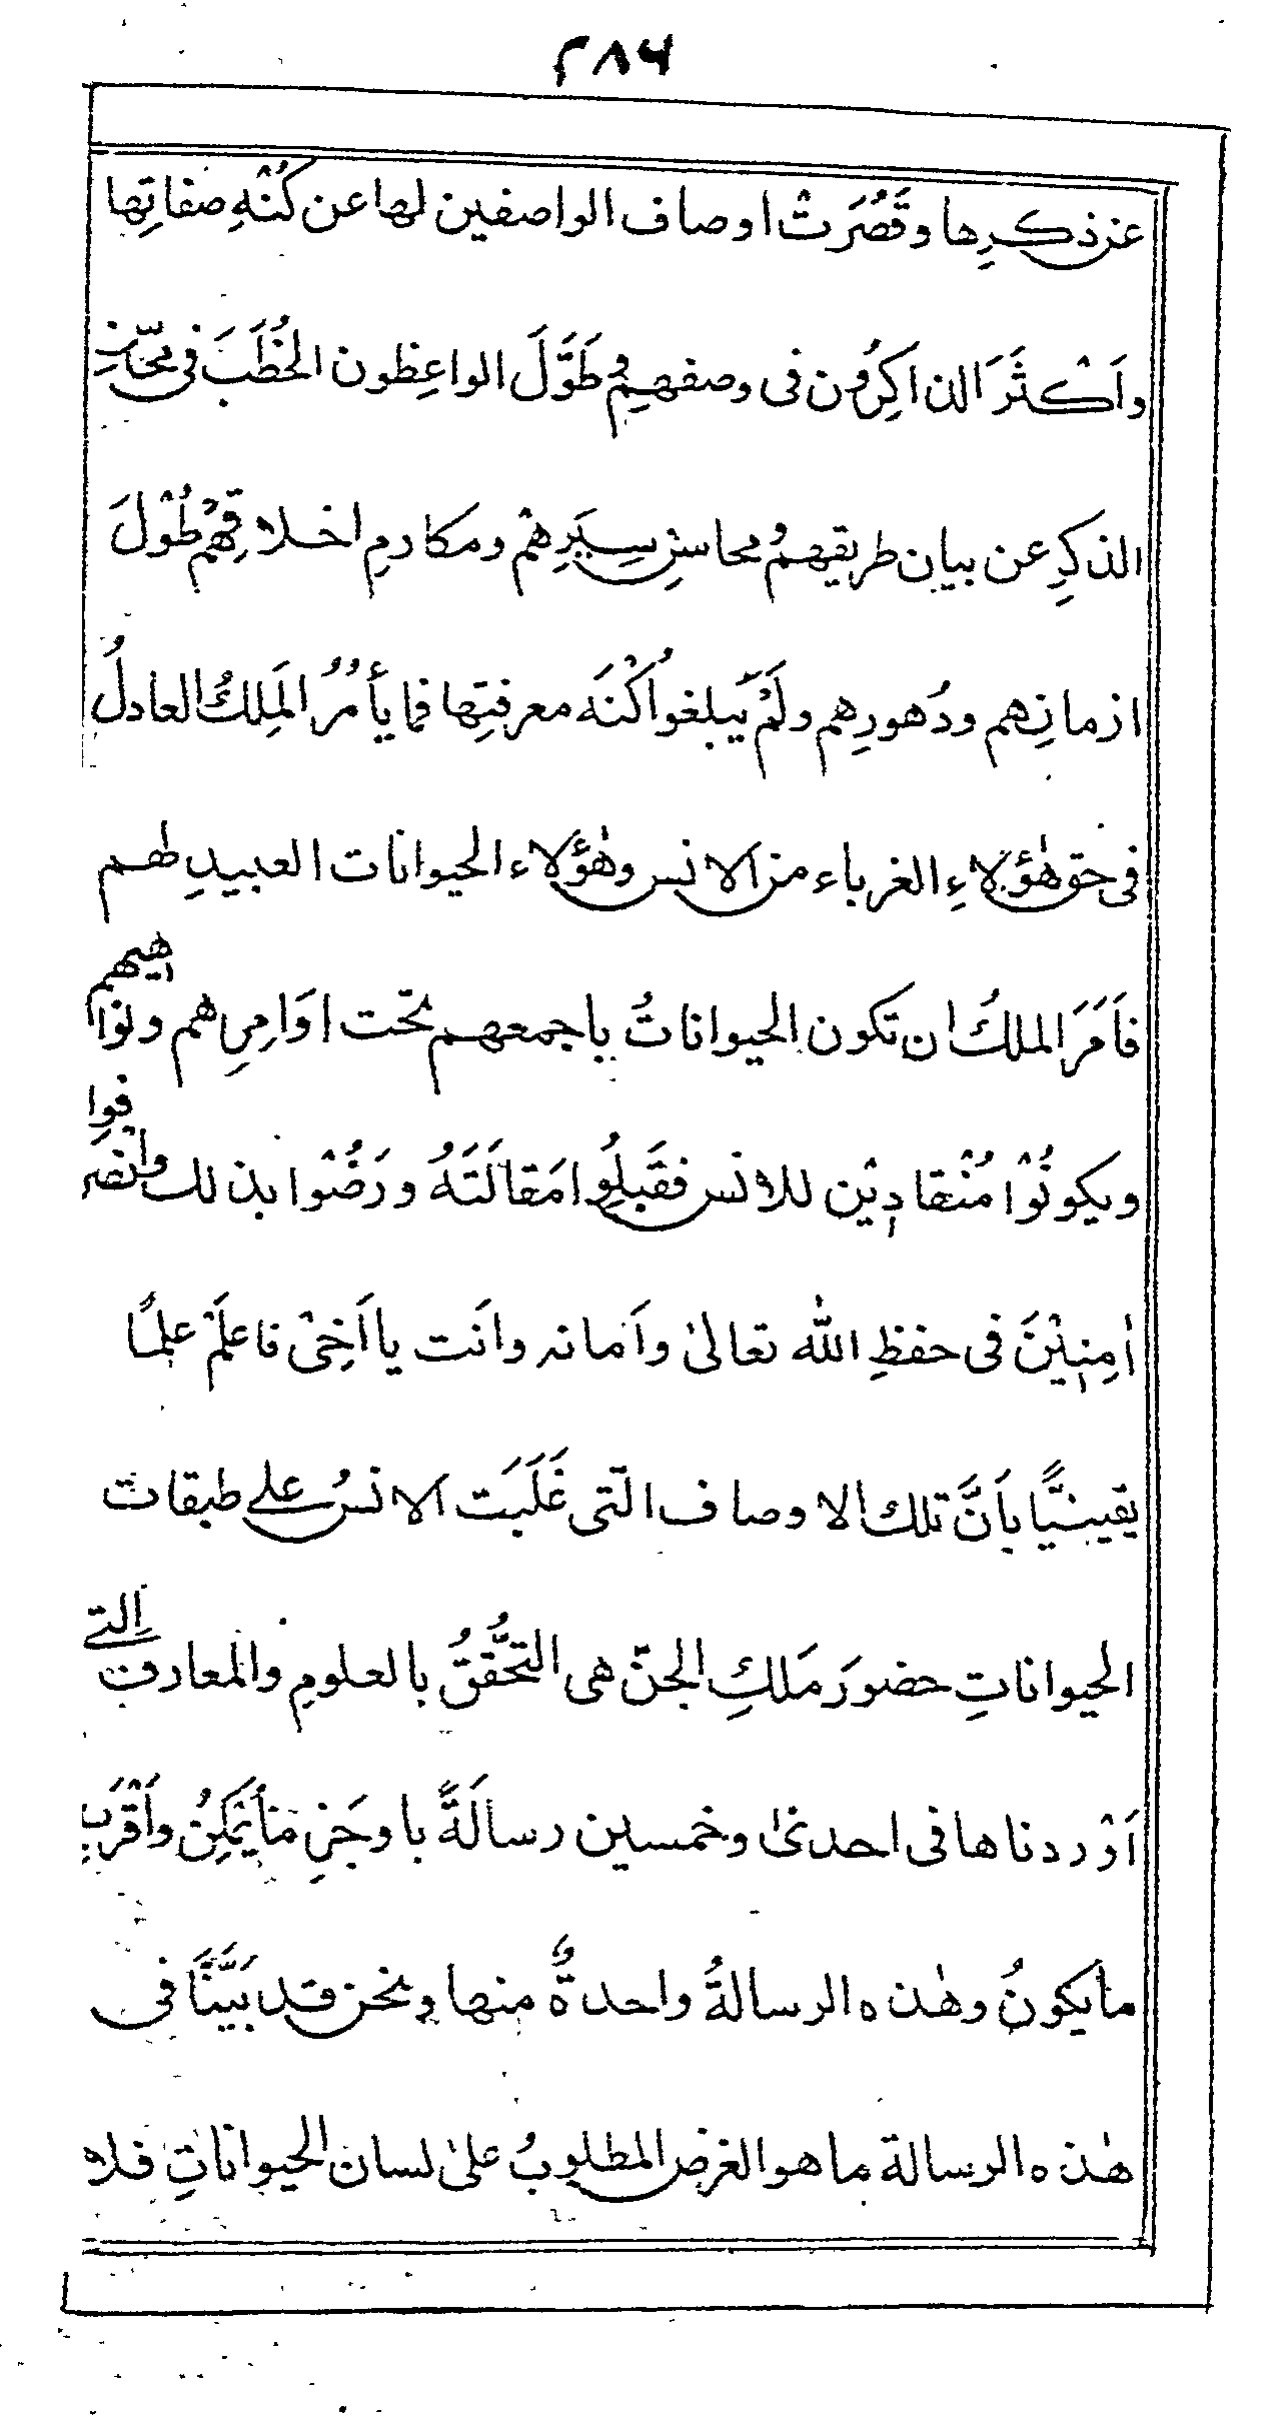 ٢٨٦
عن ذكرِها وقَصُرَتْ اوصاف الواصفين لها عن كُنْهِ صفاتِها
واَكْثَرَ الذاكِرُون فى وصفهِمْ وطَوَّلَ الواعِظون الخُطَبَ فى
الذكرِ عن بيان طريقهم ومحاسنِ سِيَرِهمْ ومكارمِ اخلاقِهمْ طُوْلَ
ازمانِهم ودُهورِهم ولَمْ يَبلغوا كُنْهَ معرفتِها فما يأمُرُ المَلِكُ العادلُ
فى حق هٰؤلاءِ الغرباء من الانس وهٰؤلاء الحيوانات العبيدِ لهم
فاَمَرَ الملكُ ان تكون الحيواناتُ باجمعهم تحت اوَامِرِهم ونواهيهم
ويكونُوْا مُنْقادِيْن للانس فقَبِلُوا مَقالَتَهُ ورَضُوْا بذلك وانصرفوا
اٰمِنِيْنَ فى حفظِ الله تعالىٰ واَمانه وانَت يا اَخِىْ فاعلَمْ علمًا
يقينيًّا باَنَّ تلك الاوصاف الّتى غَلَبَت الانسُ على طبقات
الحيواناتِ حضورَ مَلكِ الجنّ هى التحَّققُ بالعلومِ والمعارف اَلتى
اَوْردناها فى احدىٰ وخمسين رسالَةً باوجَزِ ما يُمْكِنُ واَقْرَبِ
ما يكونُ وهٰذه الرسالةُ واحدةٌ منها ونحن قد بَيَّنَّا فى
هٰذه الرسالة ما هو الغرض المطلوبُ علىٰ لسان الحيواناتِ فلا